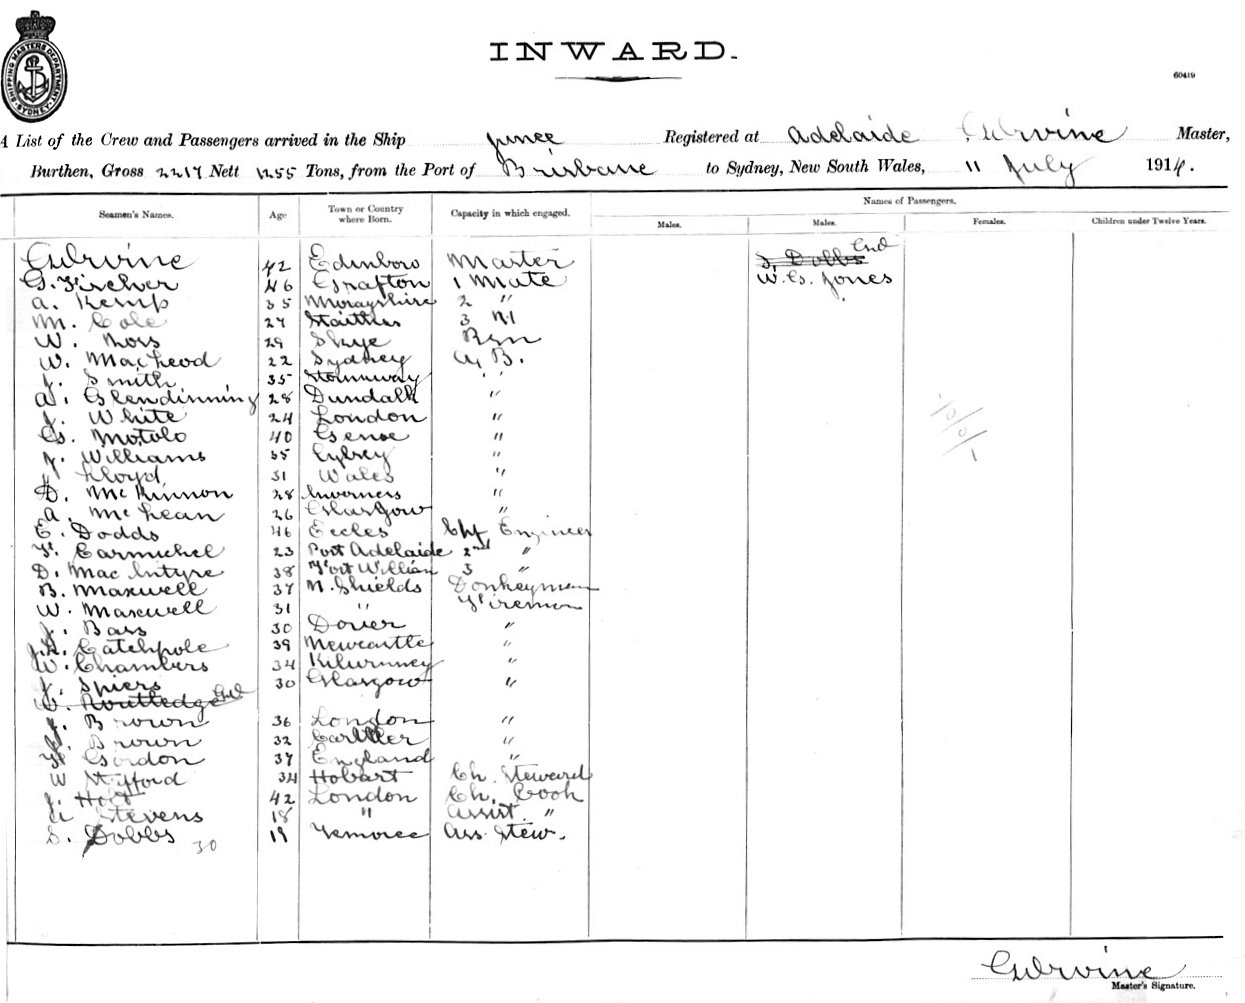 SHIPPING MASTERS DEPARTMENT SYDNEY
INWARD.
60419
A List of the Crew and Passengers arrived in the Ship Junee Registered at Adelaide GWIrvine Master,
Burthen, Gross 2217 Nett 1255 Tons, from the Port of Brisbane to Sydney, New South Wales, 11 July 1914.
Names of Passengers.
Seamen's Names. Age Town or Country where Born. Capacity in which engaged. Males. Males. Females. Children under Twelve Years.
GWIrvine 42 Edinboro Master S. Dobbs
G. Fircher 46 Grafton 1 Mate W. G. Jones
A. Kemp 35 Morayshire 2 "
M. Cole 27 Staithes 3
W. Ross 29 Skye Bsn
W. MacLeod 22 Sydney A. B.
J. Smith 35 Stornoway "
A. Glendinning 28 Dundalk "
J. White 24 London "
G. Motolo 40 Genoa "
J. Williams 35 "
J Lloyd 31 Wales "
D. McKinnon 28 Inverness "
A. McLean 26 Glasgow "
E. Dodds 46 Eccles Chf Engineer
F. Carmichel 23 Port Adelaide 2nd "
D. MacIntyre 38 Fort William 3 "
B. Maxwell 37 N. Shields Donkeyman
W. Maxwell 31 " Fireman
J. Bass 30 Dover "
J.A. Catchpole 39 Newcastle "
W. Chambers 34 "
J. Spiers 30 Glasgow "
W. Routledge
J. Brown 36 London "
J. Brown 32 "
H Gordon 37 England "
W 34 Hobart Ch. Steward
J. Holt 42 London Ch. Cook
A Stevens 18 " Assist. "
S. Dobbs 19 Temora Ass. Stew.
30
10/0/1
GWIrvine
Master's Signature.